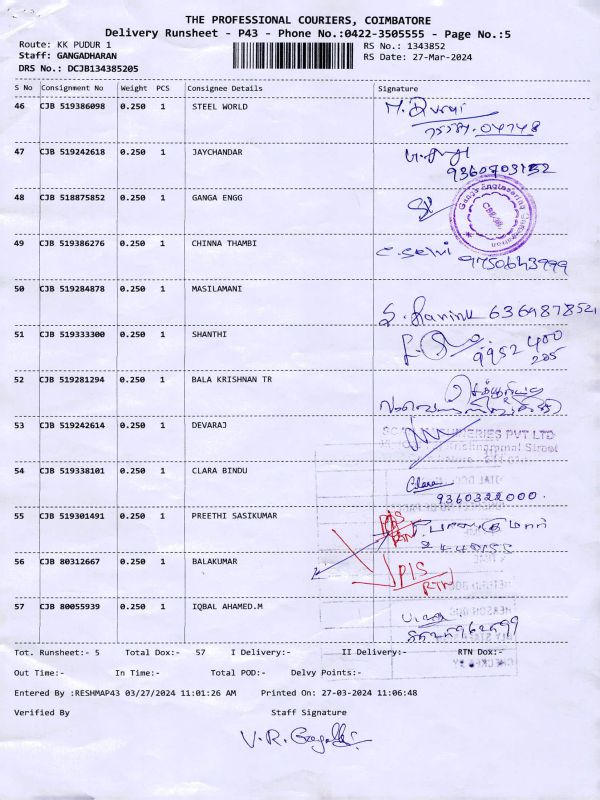 THE PROFESSIONAL COURIERS, COIMBATORE
Delivery Runsheet - P43 - Phone No.:0422-3505555 - Page No.:5
Route: KK PUDUR 1
RS No.: 1343852
Staff: GANGADHARAN
RS Date: 27-Mar-2024
DRS No.: DCJB134385205
S No Consignment No Weight PCS Consignee Details Signature
46 CJB 519386098 0.250 1 STEEL WORLD
04748
47 CJB 519242618 0.250 1 JAYCHANDAR
48 CJB 518875852 0.250 1 GANGA ENGG
Ganga Engineering
49 CJB 519386276 0.250 1 CHINNA THAMBI
C. Selvi 9750643999
50 CJB 519284878 0.250 1 MASILAMANI
6369878521
51 CJB 519333300 0.250 1 SHANTHI
9952 400
205
52 CJB 519281294 0.250 1 BALA KRISHNAN TR
53 CJB 519242614 0.250 1 DEVARAJ
PVT LTD
Street
54 CJB 519338101 0.250 1 CLARA BINDU
Clara
9360322000.
55 CJB 519301491 0.250 1 PREETHI SASIKUMAR
56 CJB 80312667 0.250 1 BALAKUMAR
P/S
RTN
57 CJB 80055939 0.250 1 IQBAL AHAMED.M
Tot. Runsheet:- 5 Total Dox:- 57 I Delivery:- II Delivery:- RTN Dox:-
Out Time:- In Time:- Total POD:- Delvy Points:-
Entered By :RESHMAP43 03/27/2024 11:01:26 AM Printed On: 27-03-2024 11:06:48
Verified By Staff Signature